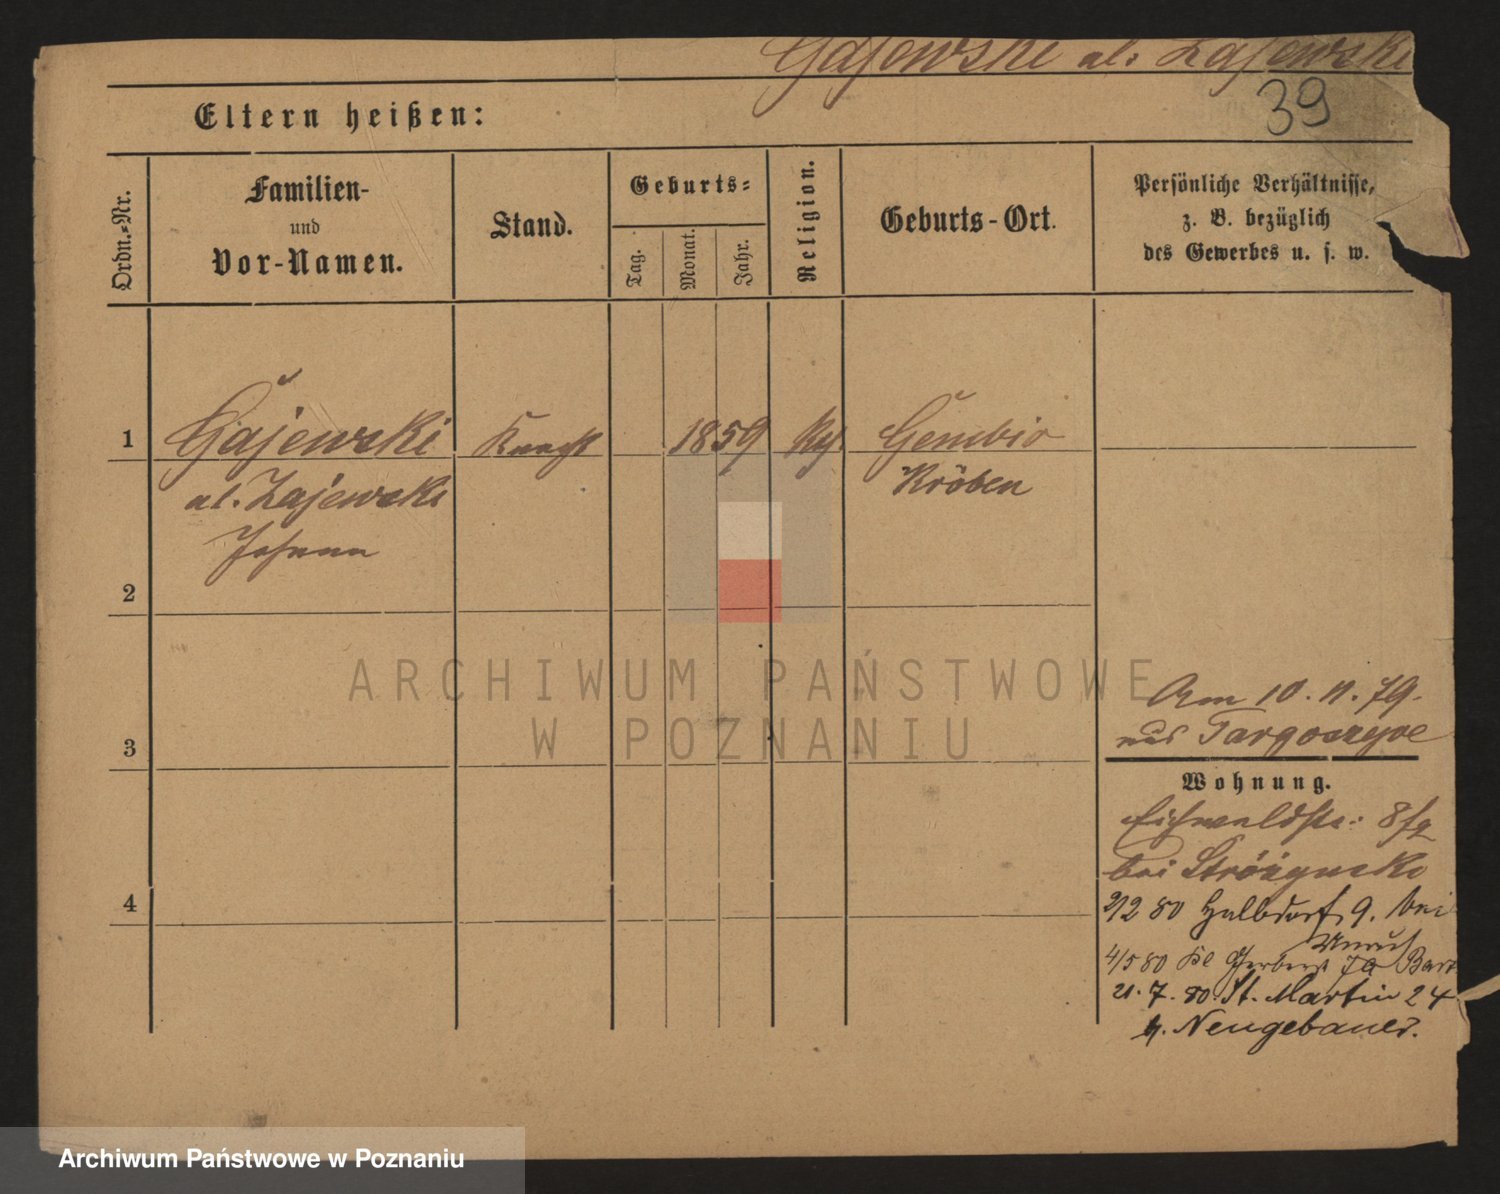 Gajewski al. Zajewski
39
Eltern heißen:
Ordn.-Nr.
Familien-
und
Vor-Namen.
Stand.
Geburts-
Tag.
Monat.
Jahr.
Religion.
Geburts-Ort.
Persönliche Verhältnisse,
z. B. bezüglich
des Gewerbes u. s. w.
1
Gajewski
Knecht
1859
Gembic
al. Zajewski
Kröben
Johann
2
ARCHIWUM PAŃSTWOWE
W POZNANIU
3
Am 10. 11. 79.
aus
Wohnung.
Eichwaldstr. 8
bei
4
2/2 80 Halbdorf 9. bei
Unruh
4/5 80 Kl Gerberst
21. 7. 80. St. Martin 24
b. Neugebauer.
Archiwum Państwowe w Poznaniu